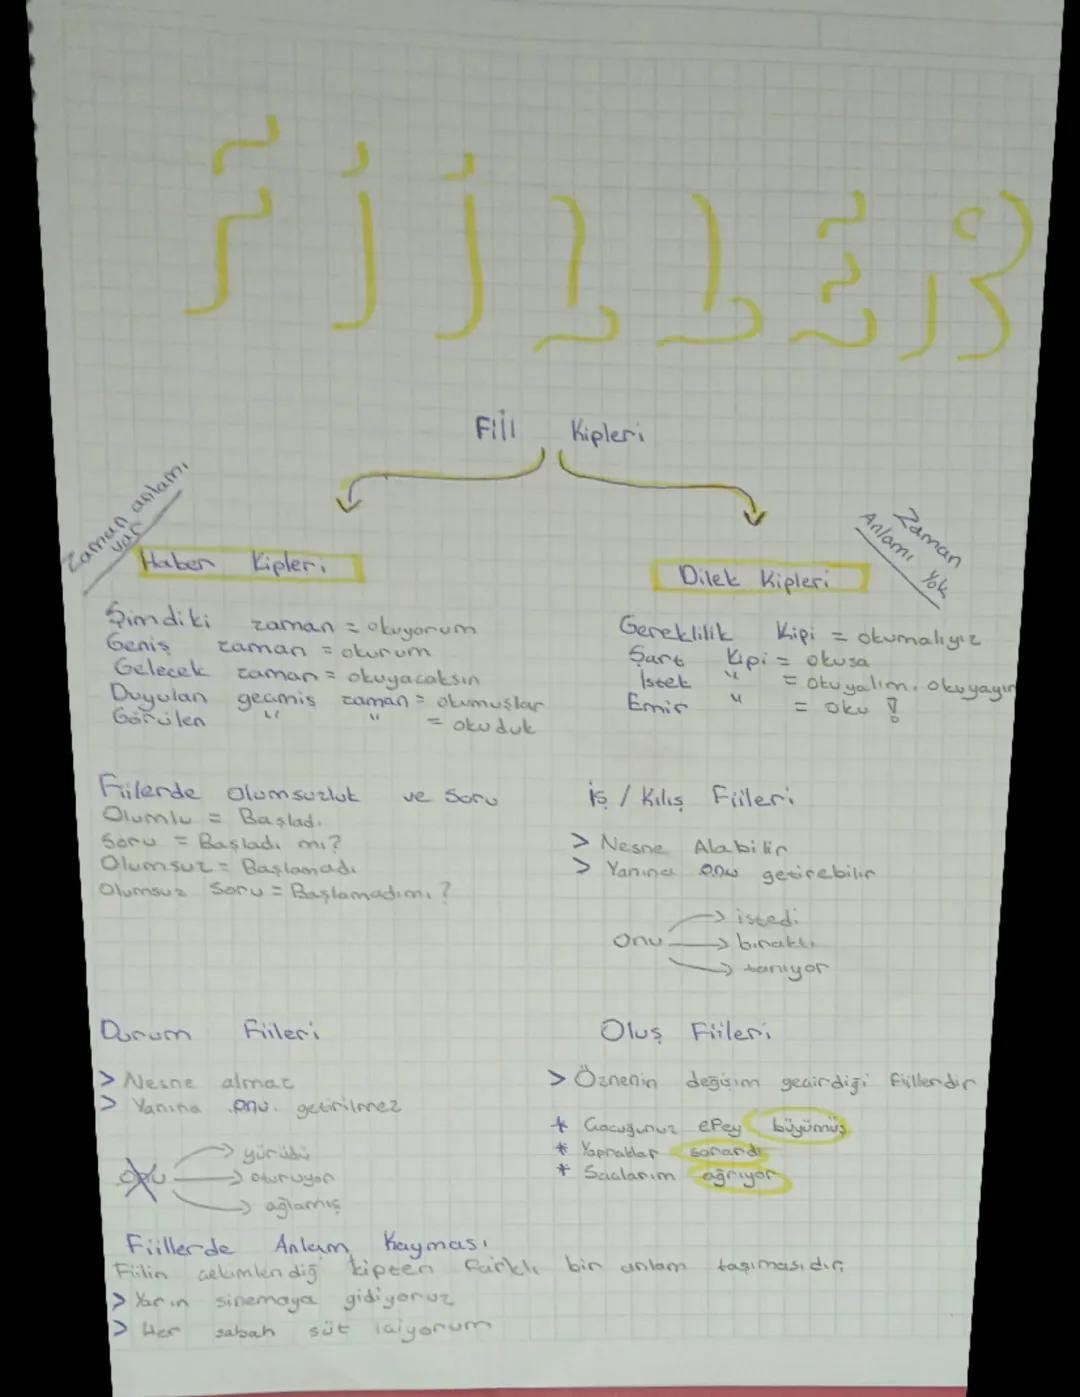 FİİLLER
Fiil Kipleri
Zaman anlamı
var
Zaman
Anlamı Yok
Haber Kipleri
Dilek Kipleri
Şimdiki zaman = okuyorum
Geniş zaman = okurum
Gelecek zaman = okuyacaksın
Duyulan geçmiş zaman = okumuşlar
Görülen " " = okuduk
Gereklilik Kipi = okumalıyız
Şart Kipi = okusa
İstek " = okuyalım, okuyayım
Emir " = oku !
Fiilerde Olumsuzluk ve Soru
Olumlu = Başladı
Soru = Başladı mı?
Olumsuz = Başlamadı
Olumsuz Soru = Başlamadımı ?
İş / Kılış Fiileri
> Nesne Alabilir
> Yanına onu getirebilir
Onu → istedi
→ bıraktı
→ tanıyor
Durum Fiileri
> Nesne almaz
> Yanına onu getirilmez
Onu → yürüdü
→ oturuyor
→ ağlamış
Oluş Fiileri
> Öznenin değişim geçirdiği fiillerdir
* Çocuğunuz epey büyümüş
* Yapraklar sarardı
* Saçlarım ağrıyor
Fiillerde Anlam Kayması
Fiilin çekimlendiğ kipten farklı bir anlam taşımasıdır;
> Yarın sinemaya gidiyoruz
> Her sabah süt içiyorum